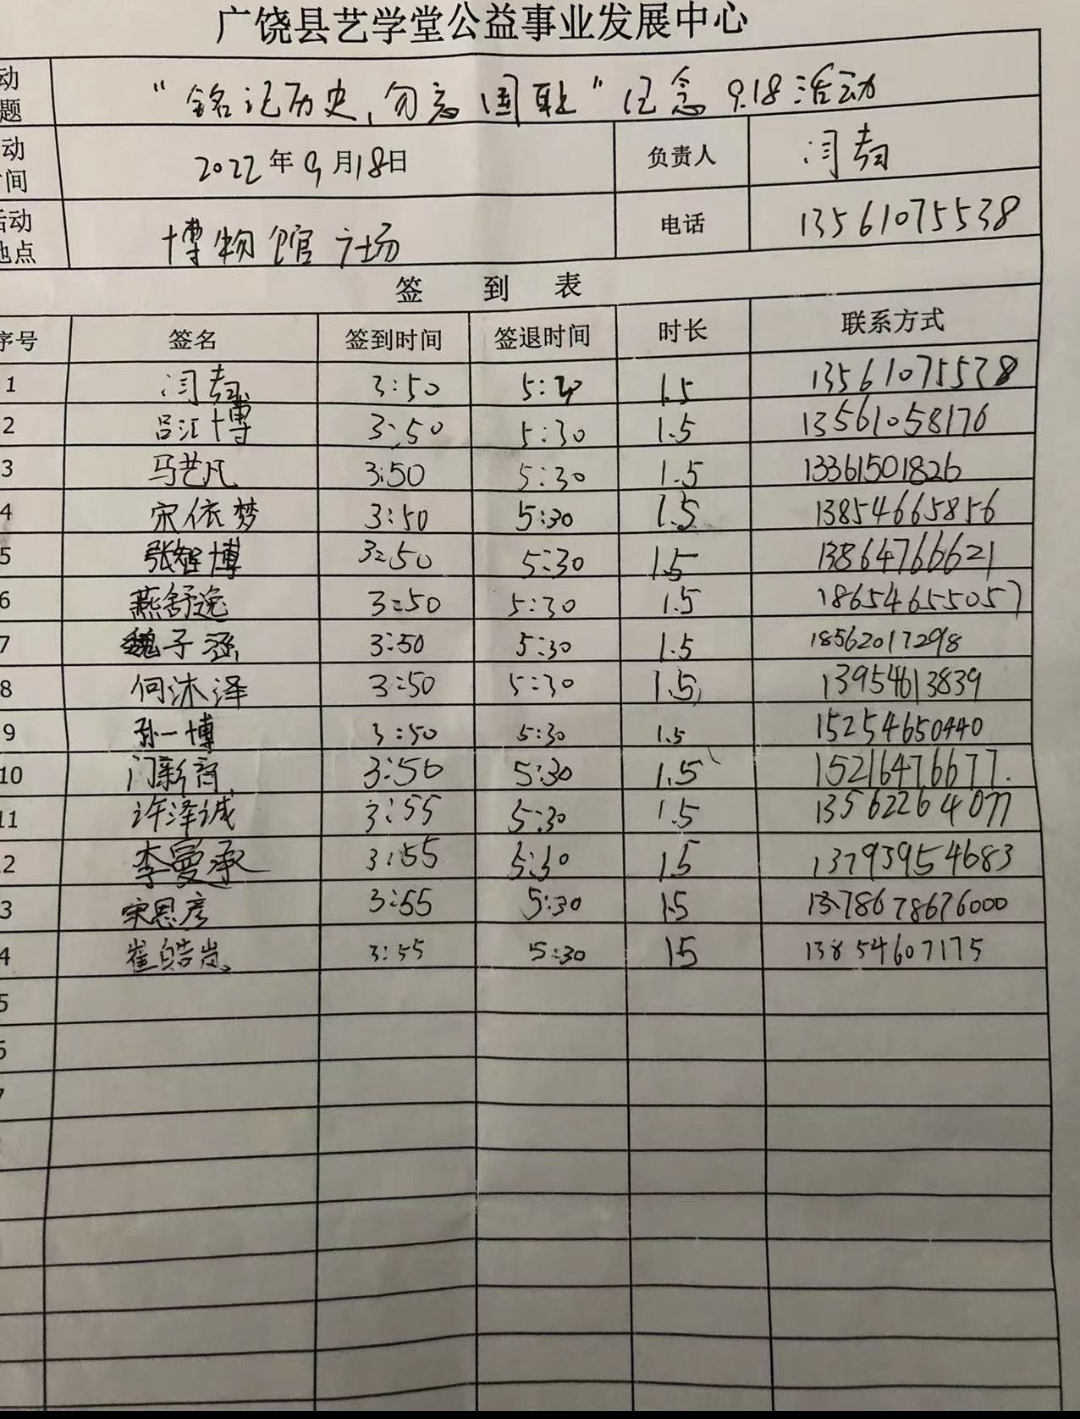 广饶县艺学堂公益事业发展中心
动题 “铭记历史,勿忘国耻”纪念9.18活动
动间 2022年9月18日 负责人 闫
活动地点 博物馆广场 电话 13561075538
签 到 表
序号 签名 签到时间 签退时间 时长 联系方式
1 闫 3:50 5:30 1.5 13561075538
2 吕汇博 3:50 5:30 1.5 13561058176
3 马艺凡 3:50 5:30 1.5 13361501826
4 宋依梦 3:50 5:30 1.5 13854665856
5 张智博 3:50 5:30 1.5 13864766621
6 燕舒逸 3:50 5:30 1.5 18654655057
7 魏子涵 3:50 5:30 1.5 18562017298
8 何沐泽 3:50 5:30 1.5 13954613839
9 孙一博 3:50 5:30 1.5 15254650440
10 门新 3:50 5:30 1.5 15216476677.
11 许泽诚 3:55 5:30 1.5 13562264077
2 李曼承 3:55 5:30 1.5 13793954683
3 宋恩彦 3:55 5:30 1.5 1378678676000
4 崔皓岚 3:55 5:30 15 13854607175
5
6
7